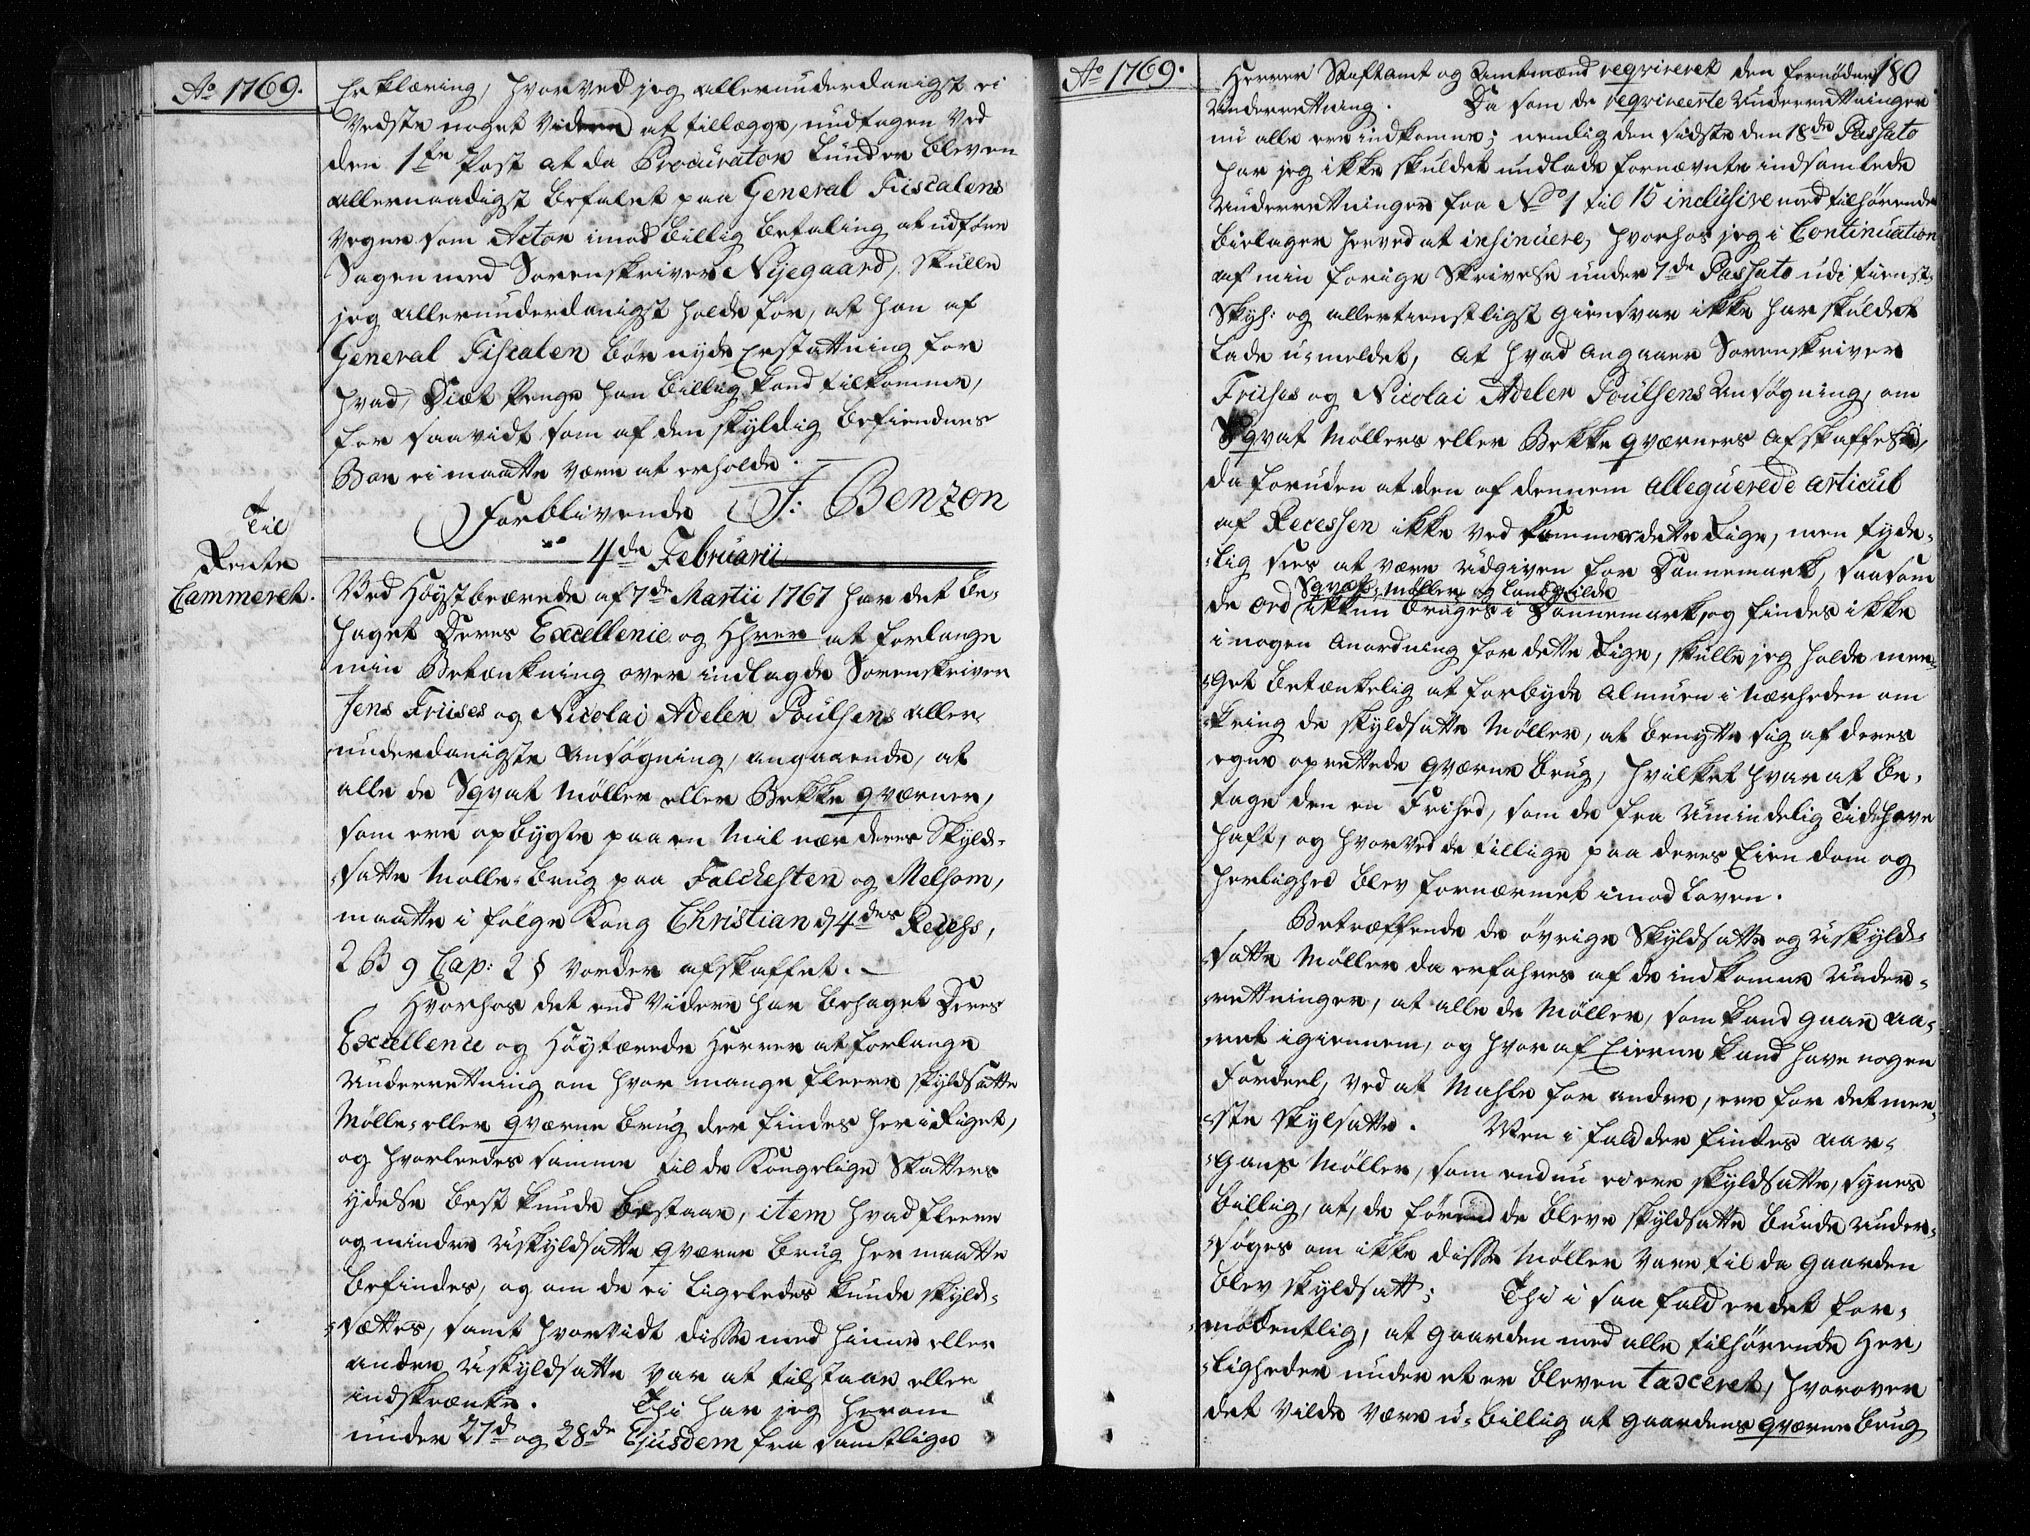 Ao 1769.
Erklæring, hvorved jeg allerunderdanigst ei
vedste noget videre at tillægge, undtagen ved
den 1ste Post at da Procurator Lunder bleven
allernaadigst befalet paa General Fiscalens
vegne som Actor imod billig betaling at udføre
Sagen med Sorenskriver Nyegaard, skulle
jeg allerunderdanigst holde for, at han af
General Fiscalen bør nyde Erstattning for
hvad Diæt Penge han billig kand tilkomme,
for saavidt som af den skyldig befindes
Boe ei maatte være at erholde.
Forblivende J: Benzon
4de Februarii
Til
Rente
Cammeret.
Ved Høystbeærede af 7de Martii 1767 har det be-
haget Deres Excellence og HHrer at forlange
min Betænkning over indlagde Sorenskriver
Jens Friises og Nicolai Adeler Poulsens aller-
underdanigste Ansøgning, angaaende, at
alle de Sqvat Møller eller Bekke qværner,
som ere opbygte paa en Miil nær deres Skyld-
satte Molle-brug paa Falchesten og Melsom,
maatte i følge Kong Christian d 4des Recess,
2 B 9 Cap: 2 § vorder afskaffet.
Hvorhos det end videre har behaget Deres
Excellence og Høytærede Herrer at forlange
Underrettning om hvor mange fleere skyldsatte
Mølle- eller qværne brug der findes her i Riget,
og hvorleedes samme til de Kongelige Skatters
ydelse best kunde bestaae, item hvad fleere
og mindre Uskyldsatte qværne brug her maatte
befindes, og om de ei ligeledes kunde skyld-
sættes, samt hvorvidt disse med hinne eller
anden Uskyldsatte var at tilstaae eller
indskrænke. Thi har jeg herom
under 27de og 28de Ejusdem fra samtlige
Ao 1769.
180
Herrer Stiftamt og Amtmænd reqvireret den fornødne
Underrettning. Da som de reqvireerte Underrettninger
nu alle ere indkomne; nemlig den sidste den 18de Passato
har jeg ikke skuldet undlade fornævnte indsamlede
Underrettninger fra No 1 til 15 inclusive med tilhørende
bielager herved at insinuere, hvorhos jeg i Continuation
af min forige Skrivelse under 7de Passato udi tienst-
skyl: og allertienstligst giensvar ikke har skuldet
lade u-meldet, at hvad angaaer Sorenskriver
Friises og Nicolai Adeler Poulsens Ansøgning, om
Sqvat Møllers eller Bekke qværners afskaffelse,
da foruden at den af dennem allegueerede articul
af Recessen ikke vedkommer dette Rige, men tyde-
lig sees at være udgiven for Dannemark, saasom
de ord Sqvat-Møller og Landgilde
ikkun bruges i Dannemark, og findes ikke
i nogen Anordning for dette Rige, skulle jeg holde me-
get betænkelig at forbyde Almuen i nærheden om
kring de skyldsatte Møller, at benytte sig af deres
egne oprettede qværne brug, hvilket var at be-
tage den en Frihed, som de fra Umindelig Tid have
haft, og hvorved de tillige paa deres Eiendom og
herlighed blev fornærmet imod Loven.
Betræffende de øvrige Skyldsatte og Uskyld-
satte Møller da erfahres af de indkomne Under-
rettninger, at alle de Møller, som kand gaae Aa-
ret igiennem, og hvoraf Eierne kand have nogen
Fordeel, ved at Mahle for andre, ere for det me-
ste skylsatte. Men i fald der findes Aar-
gangs Møller, som endnu ei ere skyldsatte, synes
billig, at, de førend de bleve skyldsatte burde Under-
søges om ikke disse Møller vare til da Gaarden
blev skyldsatt; Thi i saa fald er det for-
modentlig, at Gaarden med alle tilhørende Her-
ligheder under et er bleven taxeret, hvorover
det vilde være u-billig at Gaardens qværne brug